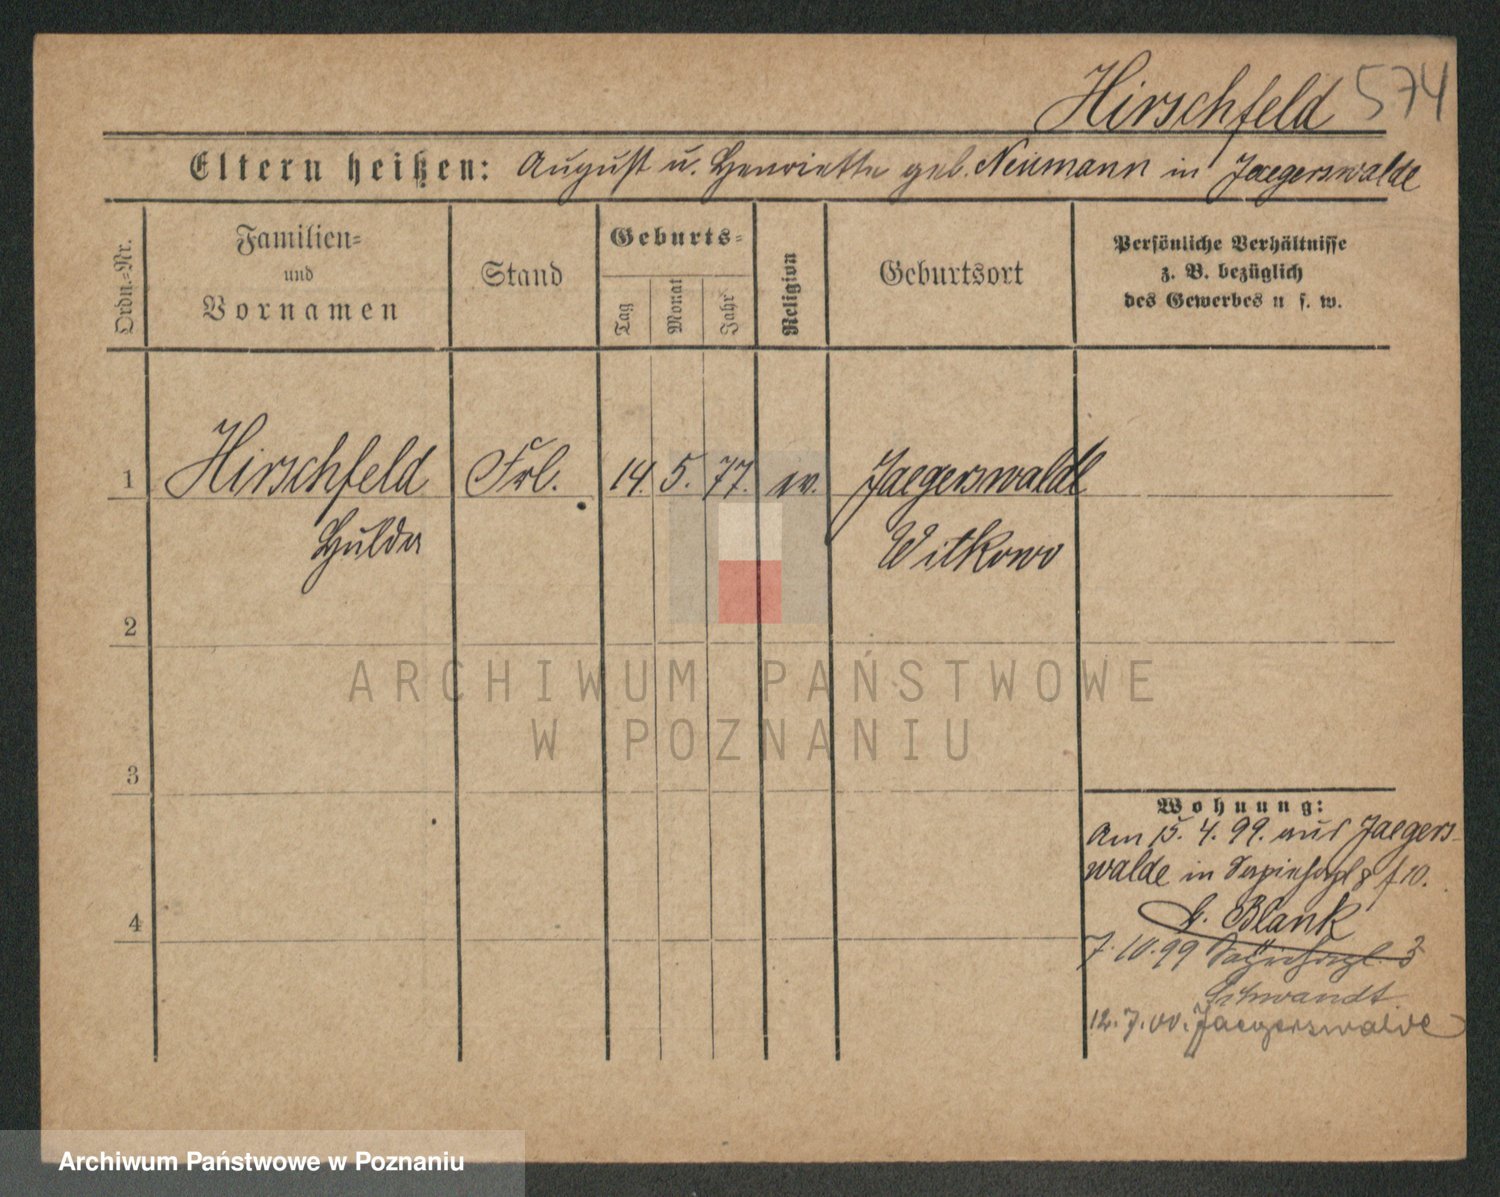 Hirschfeld 574
Eltern heißen: August u. Henriette geb. Neumann in Jaegerswalde
Ordn.-Nr.
Familien-
und
Vornamen
Stand
Geburts-
Tag
Monat
Jahr
Religion
Geburtsort
Persönliche Verhältnisse
z. B. bezüglich
des Gewerbes u s. w.
1 Hirschfeld Frl. 14. 5. 77. ev. Jaegerswalde
Hulda Witkowo
2
3
4
Wohnung:
Am 15. 4. 99. aus Jaegers-
walde in 8 10.
b. Blank
7.10.99 3
Schwandt
12.7.00. Jaegerswalde
ARCHIWUM PAŃSTWOWE
W POZNANIU
Archiwum Państwowe w Poznaniu